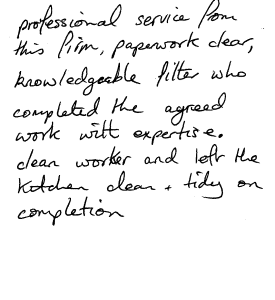 professional service from
this firm, paperwork clear,
knowledgeable fitter who
completed the agreed
work with expertise.
clean worker and left the
kitchen clean + tidy on
completion